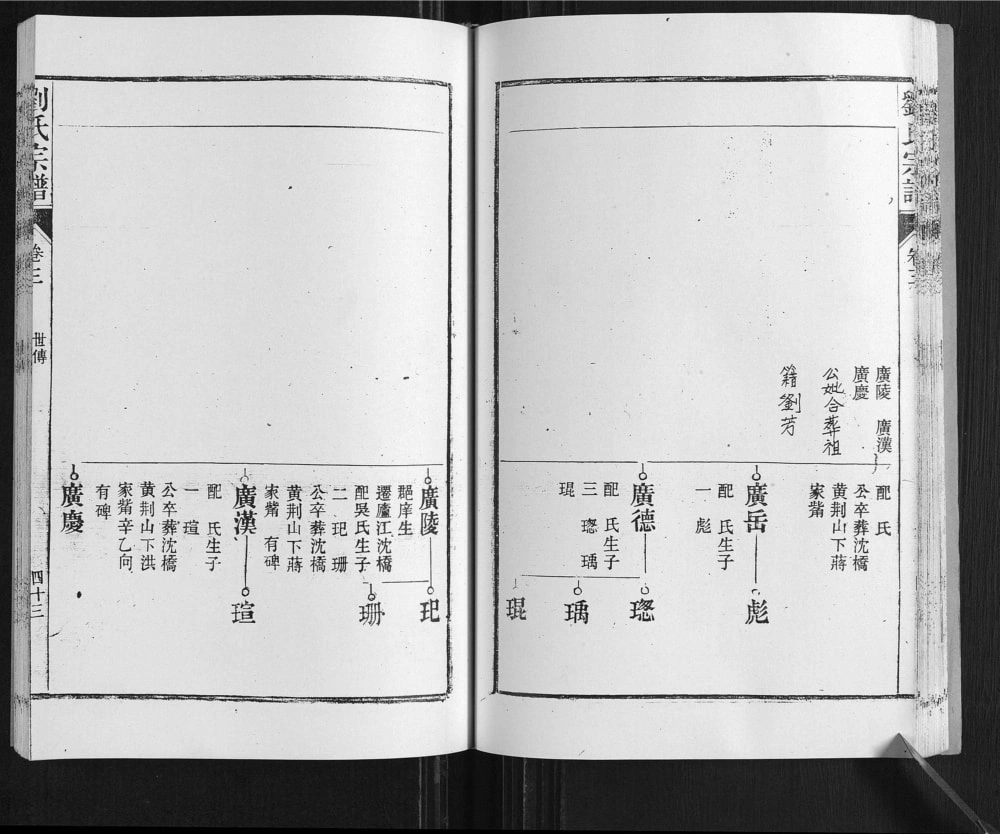 劉氏宗譜
卷三
廣陵 廣漢
廣慶
公妣合葬祖
籍劉芳
配 氏
公卒葬沈橋
黃荆山下蔣
家觜
廣岳
配 氏生子
一 彪
彪
廣德
配 氏生子
三 璁 瑀
琨
璁
瑀
琨
廣陵
邑庠生
遷廬江沈橋
配吳氏生子
二 玘 珊
公卒葬沈橋
黃荆山下蔣
家觜 有碑
玘
珊
廣漢
配 氏生子
一 瑄
公卒葬沈橋
黃荆山下洪
家觜辛乙向
有碑
瑄
廣慶
劉氏宗譜
卷三
世傳
四十三